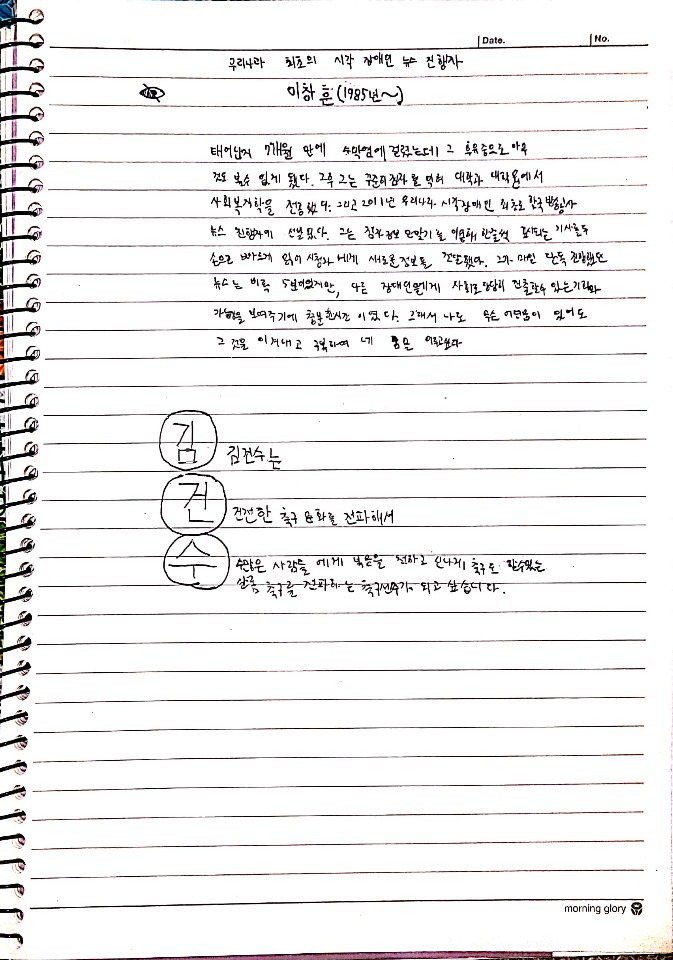 Date.
No.
우리나라 최초의 시각 장애인 뉴스 진행자
이창훈(1985년~)
태어난지 7개월 만에 뇌막염에 걸렸는데 그 후유증으로 아무
것도 볼수 없게 됐다. 그후 그는 꾸준히 점자를 익혀 대학과 대학원에서
사회복지학을 전공했다. 그리고 2011년 우리나라 시각장애인 최초로 한국방송사
뉴스 진행자에 선발됐다. 그는 점자정보 단말기를 이용해 한줄씩 표시되는 기사를 두
손으로 빠르게 읽어 시청자에게 새로운 정보를 전달했다. 그가 매일 단독 진행했던
뉴스는 비록 5분이었지만, 다른 장애인들에게 사회로 당당히 진출할수 있는
가능성을 보여주기에 충분한시간 이였다. 그래서 나도 무슨 어려움이 있어도
그것을 이겨내고 극복하여 내 꿈을 이루고싶다
김 김건수는
건 건전한 축구 문화를 전파해서
수 수많은 사람들 에게 복음을 전하고 신나게 축구도 할수있는
축구를 전파하는 축구선수가 되고 싶습니다.
morning glory